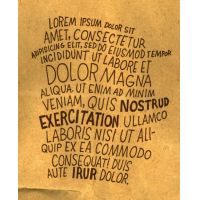 LOREM IPSUM DOLOR SIT
AMET, CONSECTETUR
ADIPISICING ELIT, SED DO EIUSMOD TEMPOR
INCIDIDUNT UT LABORE ET
DOLOR MAGNA
ALIQUA. UT ENIM AD MINIM
VENIAM, QUIS NOSTRUD
EXERCITATION ULLAMCO
LABORIS NISI UT ALI-
QUIP EX EA COMMODO
CONSEQUAT! DUIS
AUTE IRUR DOLOR.